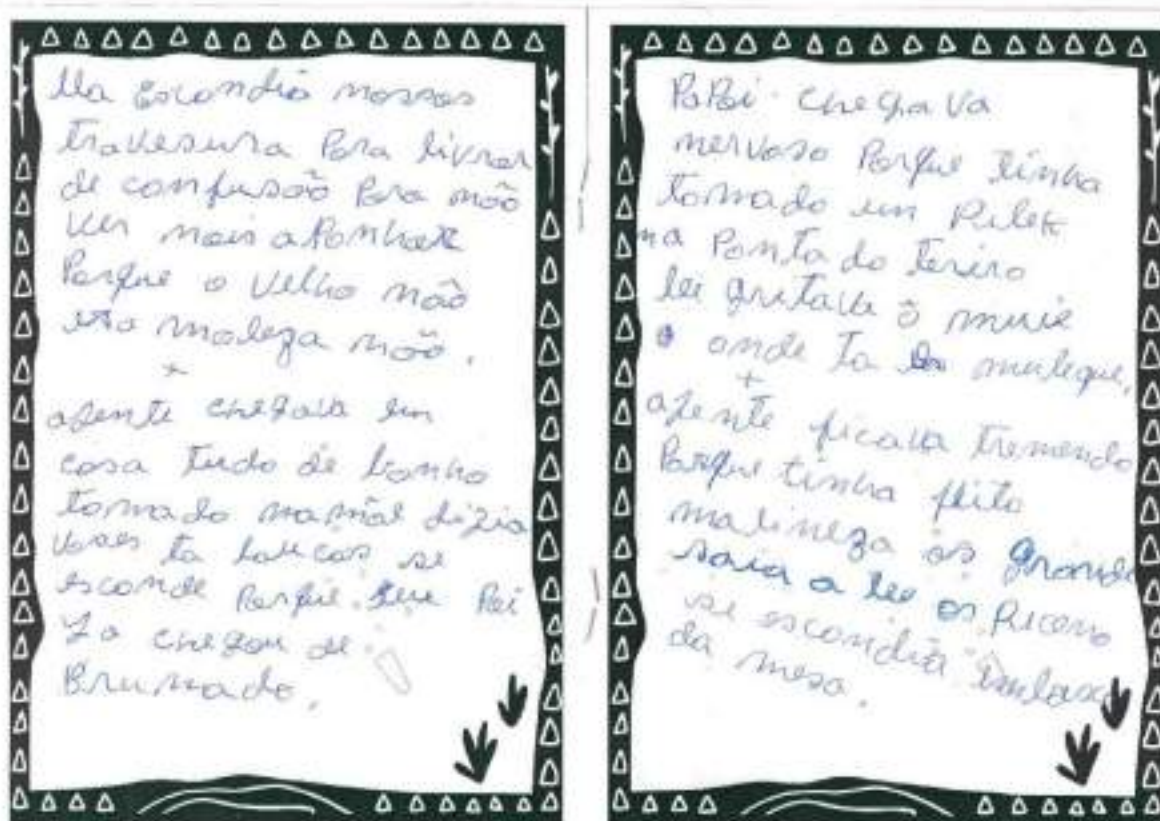 Ma Escondia nossas
travesura Para livrar
de confusão Para não
ver nois aPanhar
Porque o Velho não
era moleza não.
aJente chegava em
casa tudo de banho
tomado mamãe dizia
voses ta loucas se
esconde Porque seu Pai
Ja chegou de
Brumado.
PaPai chegava
nervoso Porque tinha
tomado um
na Ponta do teriro
lei gritava ô muie
onde ta os muleque.
aJente ficava tremendo
Porque tinha feito
malineza os grande
saia a lee os Piceno
se escondia imbaxo
da mesa.